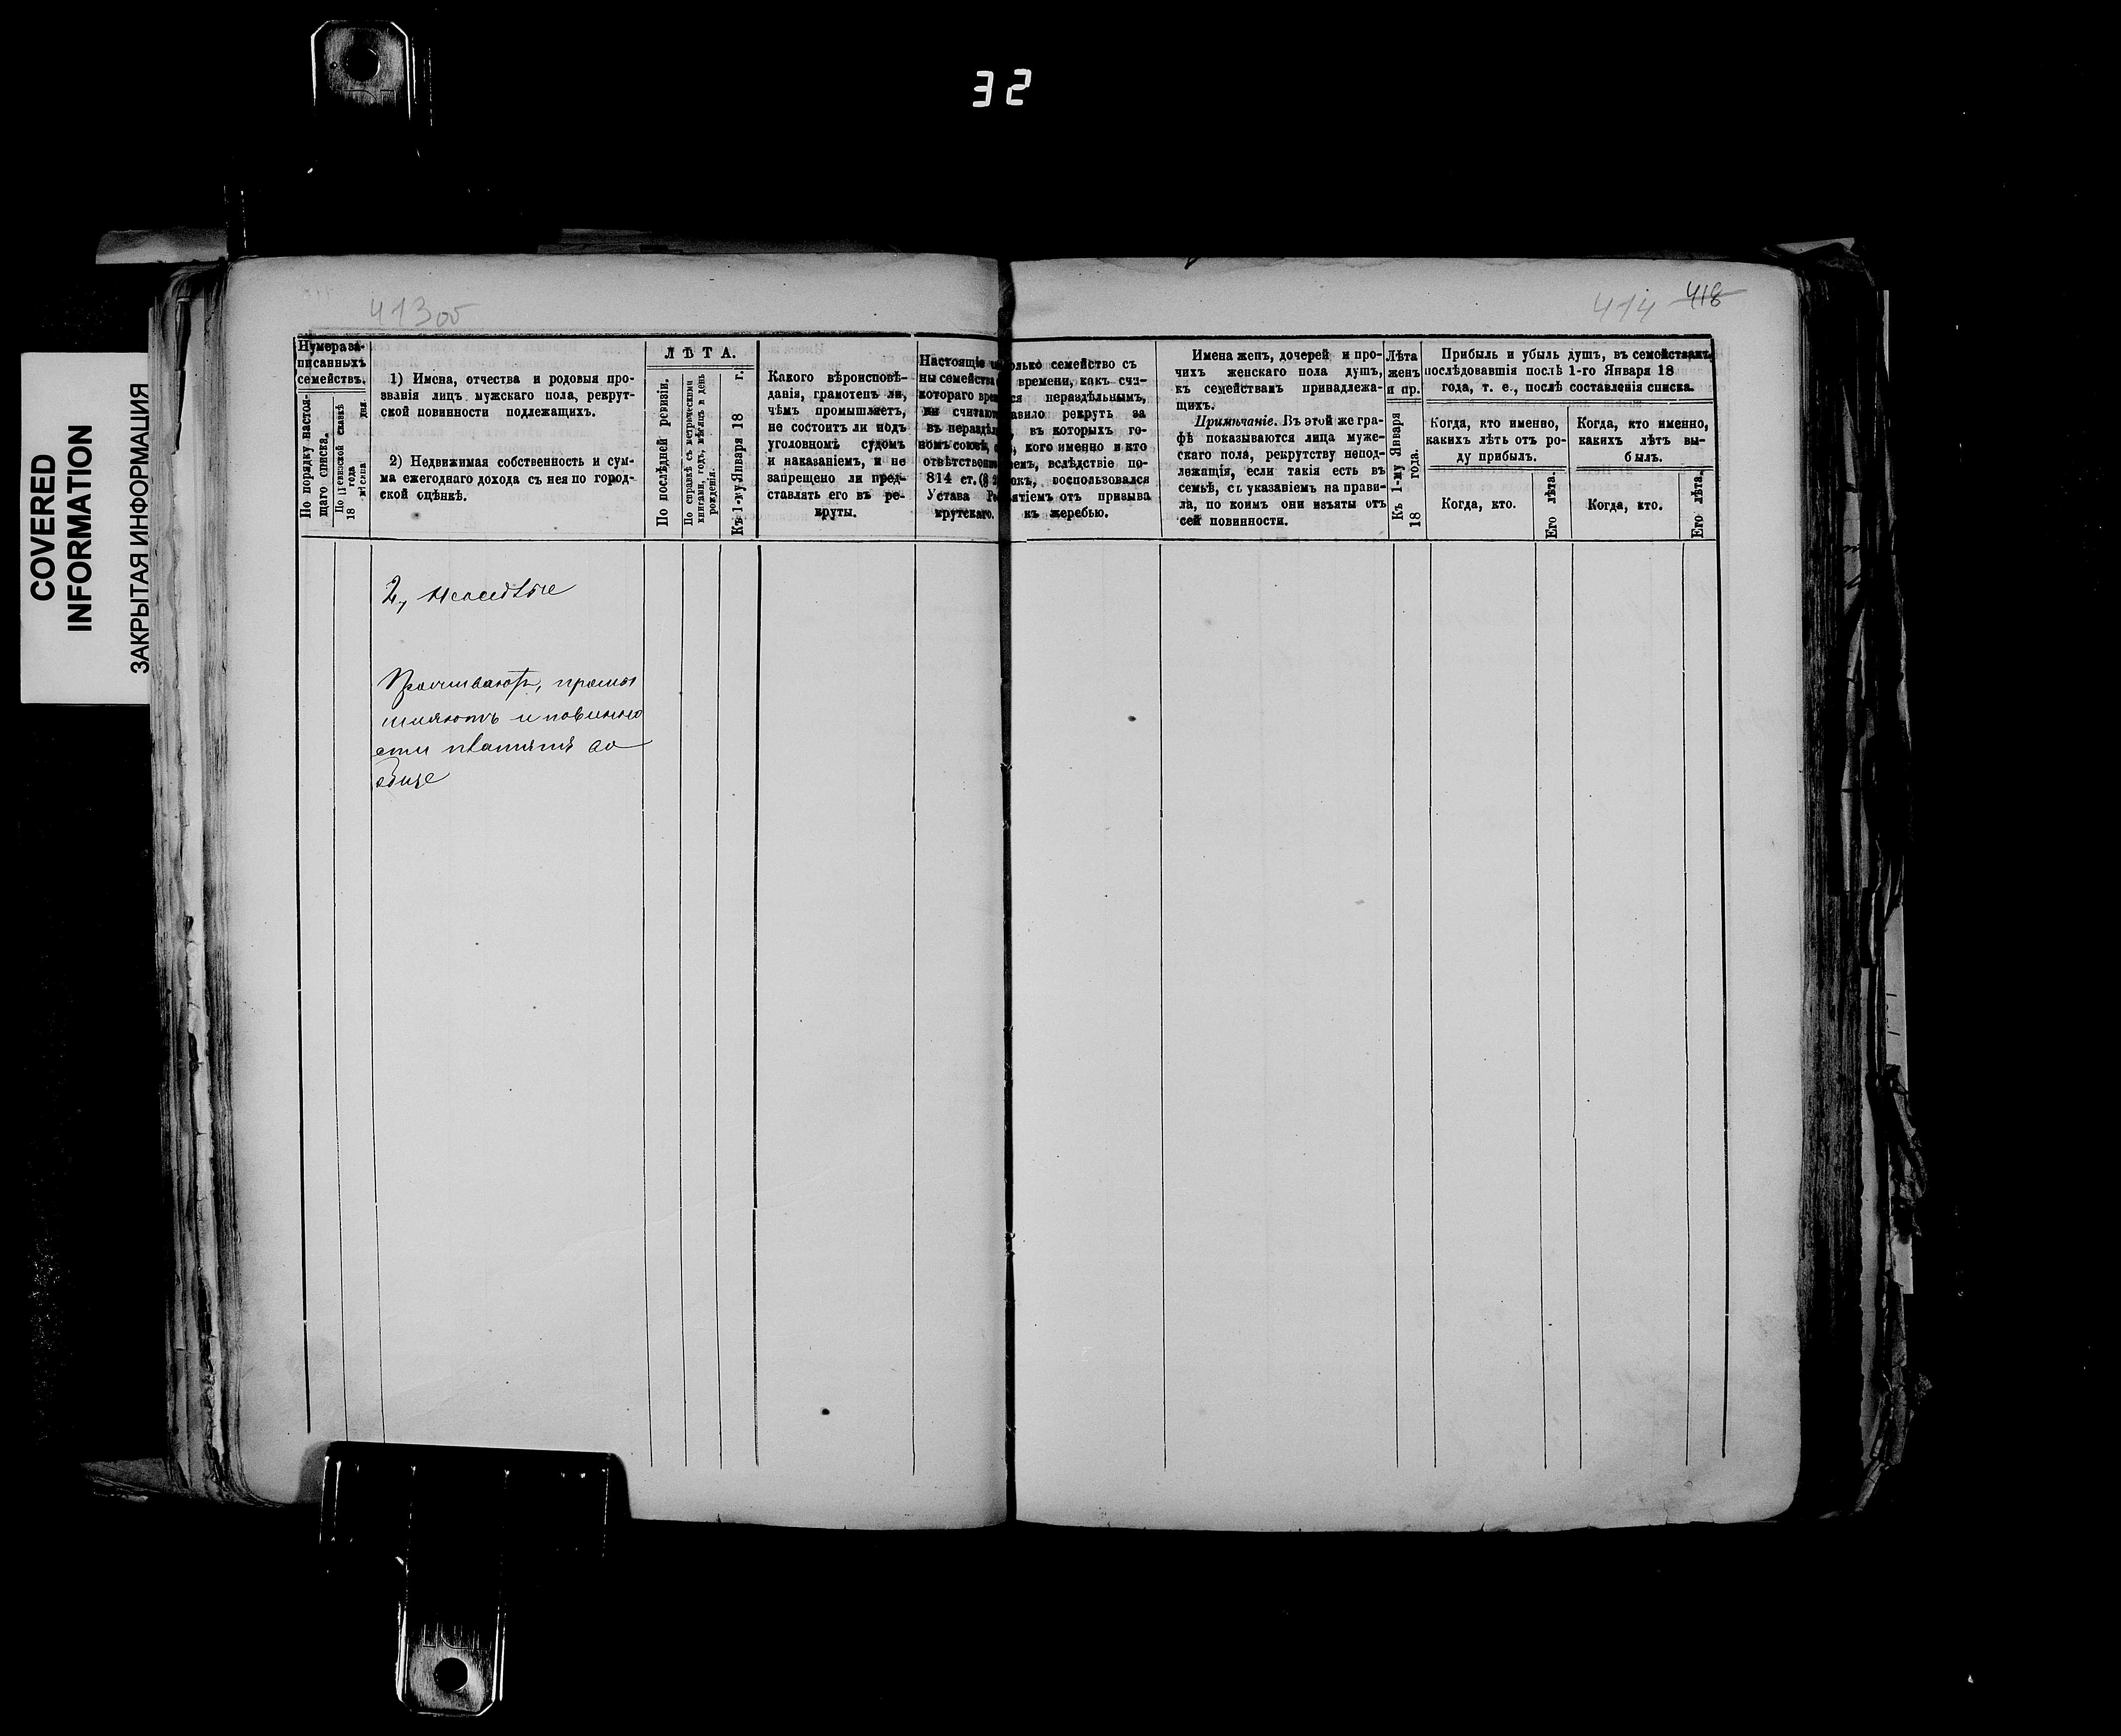 32
COVERED
INFORMATION
ЗАКРЫТАЯ ИНФОРМАЦИЯ
413об
414 418
Нумера за-
писанныхъ
семействъ.
По порядку настоя-
щаго списка.
По ревизской сказкѣ
18 года
м-сяца дня.
1) Имена, отчества и родовыя про-
званія лицъ мужскаго пола, рекрут-
ской повинности подлежащихъ.
2) Недвижимая собственность и сум-
ма ежегоднаго дохода съ нея по город-
ской оцѣнкѣ.
ЛѢТА.
По послѣдней ревизіи.
По справкѣ съ метрическими
книгами, годъ, мѣсяцъ и день
рожденія.
Къ 1-му Января 18 г.
Какого вѣроисповѣ-
данія, грамотенъ ли,
чѣмъ промышляетъ,
не состоитъ ли подъ
уголовномъ судомъ
и наказаніемъ, и не
запрещено ли пред-
ставлять его въ ре-
круты.
Настоящіе
ны семейства
котораго
считают
въ
номъ союзѣ,
отвѣтствен
814 ст.
Устава
крутскаго.
олько семейство съ
времени, какъ счи-
ся нераздѣльнымъ,
авило рекрутъ за
въ которыхъ го-
кого именно и кто
емъ, вслѣдствіе по-
окъ, воспользовался
ятіемъ отъ призыва
къ жеребью.
Имена женъ, дочерей и про-
чихъ женскаго пола душъ,
къ семействамъ принадлежа-
щихъ.
Примѣчаніе. Въ этой же гра-
фѣ показываются лица муже-
скаго пола, рекрутству непод-
лежащія, если такія есть въ
семьѣ, съ указаніемъ на прави-
ла, по коимъ они изъяты отъ
сей повинности.
Лѣта
женъ
и пр.
Къ 1-му Января
18 года.
Прибыль и убыль душъ, въ семействахъ
послѣдовавшія послѣ 1-го Января 18
года, т. е., послѣ составленія списка.
Когда, кто именно,
какихъ лѣтъ отъ ро-
ду прибылъ.
Когда, кто.
Его лѣта.
Когда, кто именно,
какихъ лѣтъ вы-
былъ.
Когда, кто.
Его лѣта.
2,
Проживаютъ, промы
шляютъ и повинно
сти платятъ со
обще